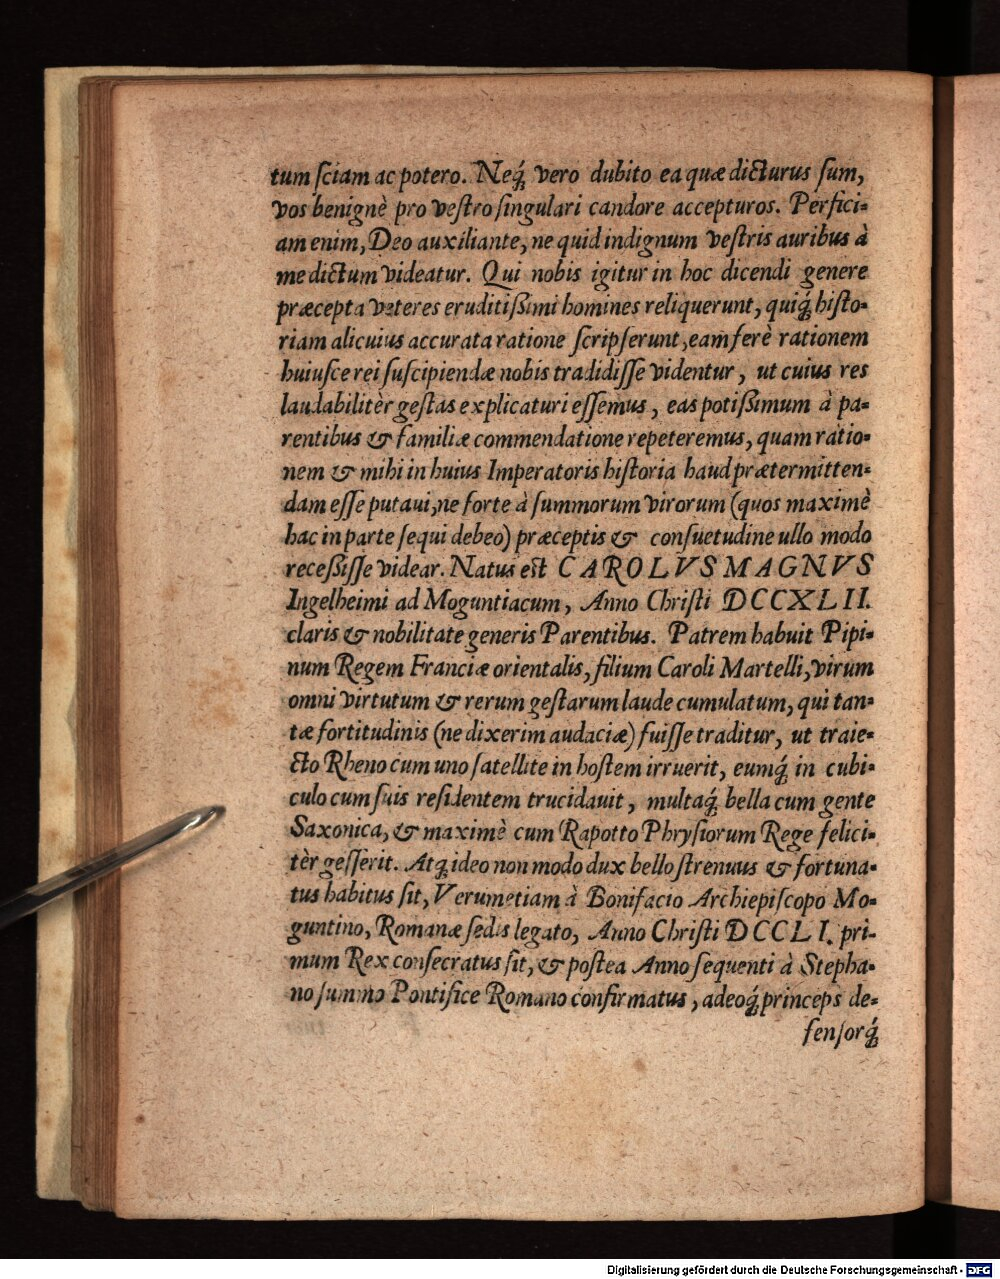 tum ſciam ac potero. Neq́; vero dubito ea quæ dicturus ſum,
vos benignè pro veſtro ſingulari candore accepturos. Perfici-
am enim, Deo auxiliante, ne quid indignum veſtris auribus à
me dictum videatur. Qui nobis igitur in hoc dicendi genere
præcepta veteres eruditiſsimi homines reliquerunt, quiq́; hiſto-
riam alicuius accurata ratione ſcripſerunt, eam ferè rationem
huiuſce rei ſuſcipiendæ nobis tradidiſſe videntur, ut cuius res
laudabilitèr geſtas explicaturi eſſemus, eas potiſsimum à pa-
rentibus & familiæ commendatione repeteremus, quam ratio-
nem & mihi in huius Imperatoris hiſtoria haud prætermitten-
dam eſſe putaui, ne forte à ſummorum virorum (quos maximè
hac in parte ſequi debeo) præceptis & conſuetudine ullo modo
receſsiſſe videar. Natus eſt CAROLVS MAGNVS
Ingelheimi ad Moguntiacum, Anno Chriſti DCCXLII.
claris & nobilitate generis Parentibus. Patrem habuit Pipi-
num Regem Franciæ orientalis, filium Caroli Martelli, virum
omni virtutum & rerum geſtarum laude cumulatum, qui tan-
tæ fortitudinis (ne dixerim audaciæ) fuiſſe traditur, ut traie-
cto Rheno cum uno ſatellite in hoſtem irruerit, eumq́; in cubi-
culo cum ſuis reſidentem trucidauit, multaq́; bella cum gente
Saxonica, & maximè cum Rapotto Phryſiorum Rege felici-
tèr geſſerit. Atq; ideo non modo dux bello ſtrenuus & fortuna-
tus habitus ſit, Verumetiam à Bonifacio Archiepiſcopo Mo-
guntino, Romanæ ſedis legato, Anno Chriſti DCCLI. pri-
mum Rex conſecratus ſit, & poſtea Anno ſequenti à Stepha-
no ſummo Pontifice Romano confirmatus, adeoq́; princeps de-
fenſorq́;
Digitalisierung gefördert durch die Deutsche Forschungsgemeinschaft - DFG